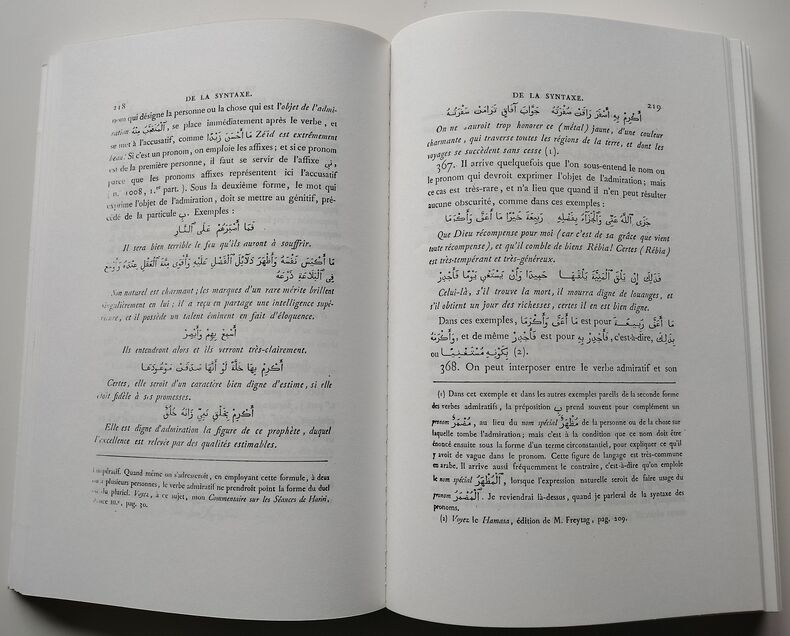 218 DE LA SYNTAXE.
nom qui désigne la personne ou la chose qui est l'objet de l'admi-
ration اَلْمُتَعَجَّبُ مِنْهُ, se place immédiatement après le verbe, et
se met à l'accusatif, comme مَا أَحْسَنَ زَيْدًا Zéïd est extrêmement
beau! Si c'est un pronom, on emploie les affixes; et si ce pronom
est de la première personne, il faut se servir de l'affixe نِى,
parce que les pronoms affixes représentent ici l'accusatif
( n.° 1008, 1.re part.). Sous la deuxième forme, le mot qui
exprime l'objet de l'admiration, doit se mettre au génitif, pré-
cédé de la particule بِ. Exemples :
فَمَا أَصْبَرَهُمْ عَلَى ٱلنَّارِ
Il sera bien terrible le feu qu'ils auront à souffrir.
مَا أَكْيَسَ نَفْسَهُ وَأَظْهَرَ دَلَائِلَ ٱلْفَضْلِ عَلَيْهِ وَأَقْوَى مِنَّةَ ٱلْعَقْلِ عِنْدَهُ وَأَوْسَعَ
فِى ٱلْبَلَاغَةِ ذَرْعَهُ
Son naturel est charmant; les marques d'un rare mérite brillent
singulièrement en lui; il a reçu en partage une intelligence supé-
rieure, et il possède un talent éminent en fait d'éloquence.
أَسْمِعْ بِهِمْ وَأَبْصِرْ
Ils entendront alors et ils verront très-clairement.
أَكْرِمْ بِهَا خُلَّةً لَوْ أَنَّهَا صَدَقَتْ مَوْعُودَهَا
Certes, elle seroit d'un caractère bien digne d'estime, si elle
étoit fidèle à ses promesses.
أَكْرِمْ بِخَلْقِ نَبِىٍّ زَانَهُ خُلُقٌ
Elle est digne d'admiration la figure de ce prophète, duquel
l'excellence est relevée par des qualités estimables.
l'impératif. Quand même on s'adresseroit, en employant cette formule, à deux
ou à plusieurs personnes, le verbe admiratif ne prendroit point la forme du duel
ou du pluriel. Voyez, à ce sujet, mon Commentaire sur les Séances de Hariri,
séance 10.e, pag. 30.
DE LA SYNTAXE. 219
أَكْرِمْ بِهِ أَصْفَرَ رَاقَتْ صُفْرَتُهُ جَوَّابَ آفَاقٍ تَرَامَتْ سَفْرَتُهُ
On ne sauroit trop honorer ce (métal) jaune, d'une couleur
charmante, qui traverse toutes les régions de la terre, et dont les
voyages se succèdent sans cesse (1).
367. Il arrive quelquefois que l'on sous-entend le nom ou
le pronom qui devroit exprimer l'objet de l'admiration; mais
ce cas est très-rare, et n'a lieu que quand il n'en peut résulter
aucune obscurité, comme dans ces exemples :
جَزَى ٱللّٰهُ عَنِّى وَٱلْجَزَآءُ بِفَضْلِهِ رَبِيعَةَ خَيْرًا مَا أَعَفَّ وَأَكْرَمَا
Que Dieu récompense pour moi (car c'est de sa grâce que vient
toute récompense), et qu'il comble de biens Rébia! Certes (Rébia)
est très-tempérant et très-généreux.
فَذٰلِكَ إِنْ يَلْقَ ٱلْمَنِيَّةَ يَلْقَهَا حَمِيدًا وَإِنْ يَسْتَغْنِ يَوْمًا فَأَجْدِرْ
Celui-là, s'il trouve la mort, il mourra digne de louanges, et
s'il obtient un jour des richesses, certes il en est bien digne.
Dans ces exemples, مَا أَعَفَّ وَأَكْرَمَا est pour مَا أَعَفَّ رَبِيعَةَ
وَأَكْرَمَهُ, et de même فَأَجْدِرْ est pour فَأَجْدِرْ بِهِ, c'est-à-dire, بِذٰلِكَ
ou بِكَوْنِهِ مُسْتَغْنِيًا (2).
368. On peut interposer entre le verbe admiratif et son
(1) Dans cet exemple et dans les autres exemples pareils de la seconde forme
des verbes admiratifs, la préposition بِ prend souvent pour complément un
pronom مُضْمَرٌ, au lieu du nom spécial مُظْهَرٌ de la personne ou de la chose sur
laquelle tombe l'admiration; mais c'est à la condition que ce nom doit être
énoncé ensuite sous la forme d'un terme circonstanciel, pour expliquer ce qu'il
y avoit de vague dans le pronom. Cette figure de langage est très-commune
en arabe. Il arrive aussi fréquemment le contraire, c'est-à-dire qu'on emploie
le nom spécial اَلْمُظْهَرُ, lorsque l'expression naturelle seroit de faire usage du
pronom اَلْمُضْمَرُ. Je reviendrai là-dessus, quand je parlerai de la syntaxe des
pronoms.
(2) Voyez le Hamasa, édition de M. Freytag, pag. 209.